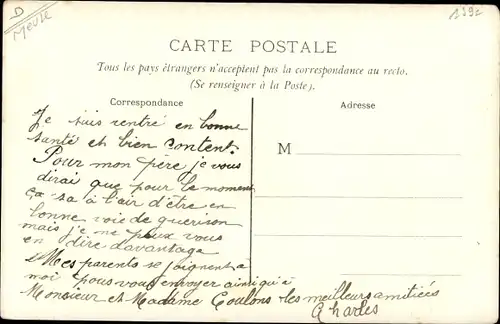 D
Meuse
CARTE POSTALE
Tous les pays étrangers n'acceptent pas la correspondance au recto.
(Se renseigner à la Poste).
Correspondance
Adresse
M
Je suis rentré en bonne
santé et bien content.
Pour mon père je vous
dirai que pour le moment
ça sa à l'air d'être en
bonne voie de guerison
mais je ne peux vous
en dire davantage
Mes parents se joignent a
moi pous vous envoyer ainsi qu'à
Monsieur et Madame Coulons les meilleurs amitiées
Charles